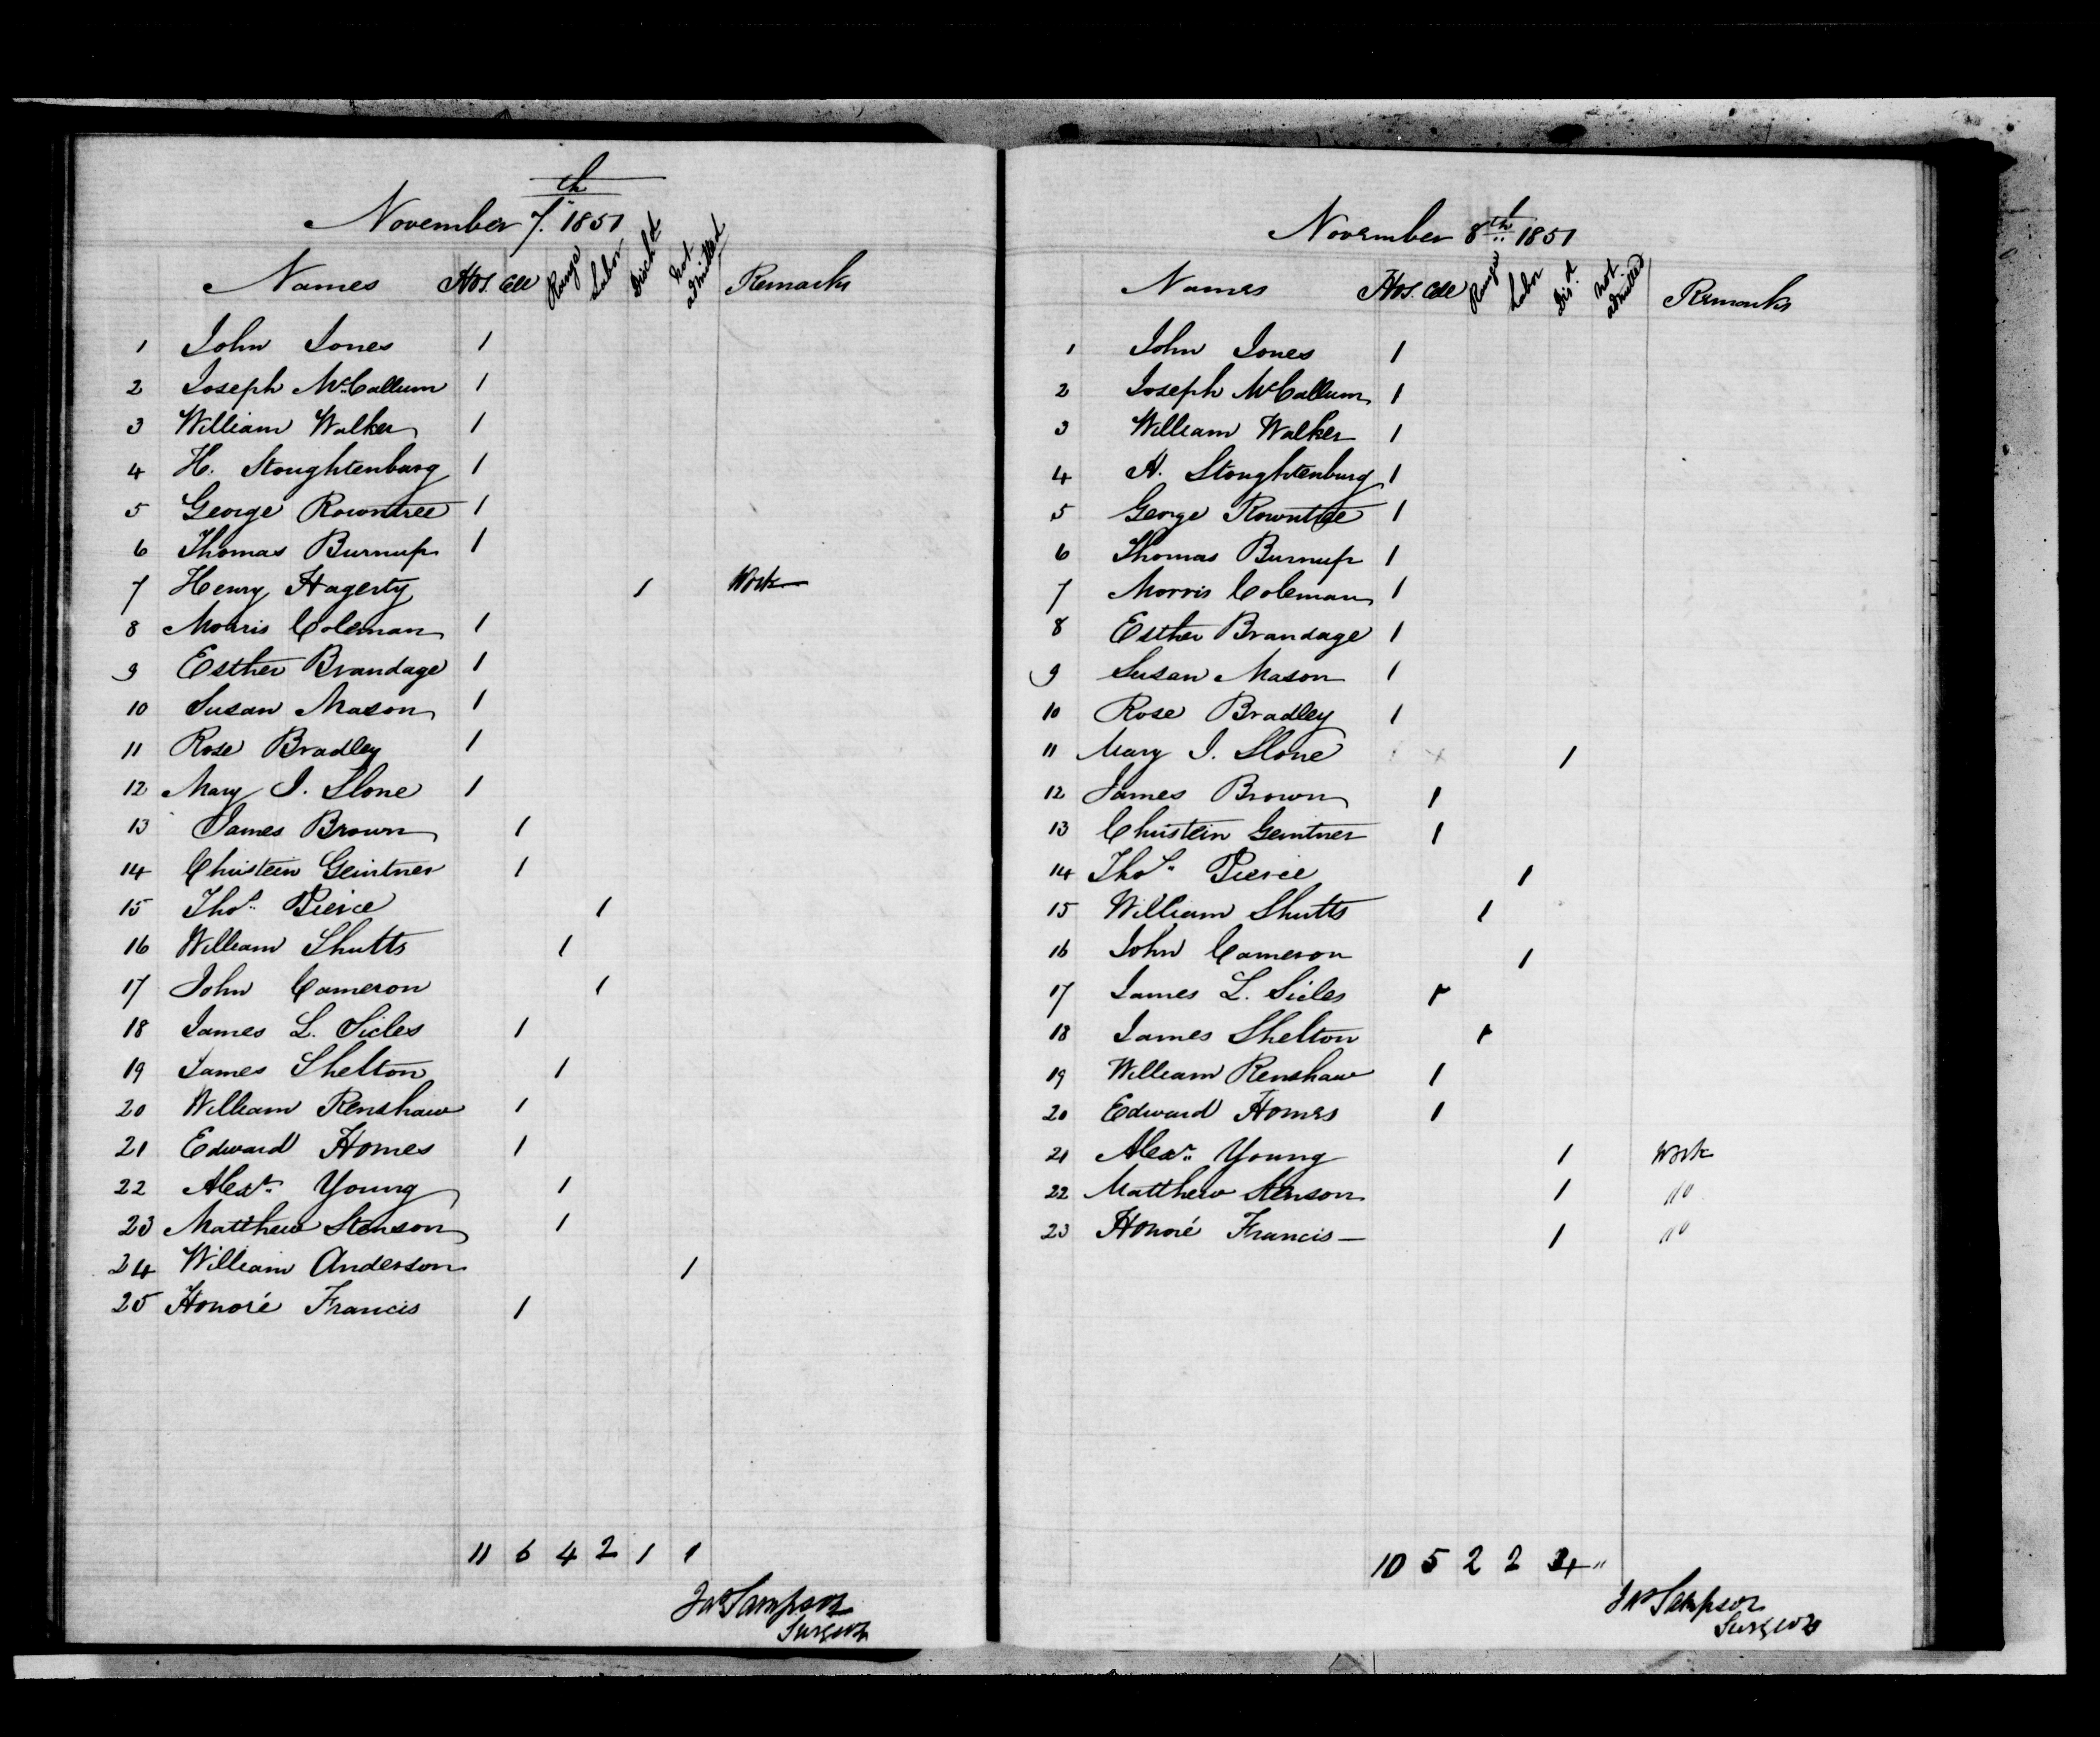 November 7th. 1851
Names Hos. Cell Range Labor Disch'd Not admitted Remarks
1 John Jones 1
2 Joseph McCallum 1
3 William Walker 1
4 H. Stoughtenburg 1
5 George Rowntree 1
6 Thomas Burnup 1
7 Henry Hagerty 1 Work
8 Morris Coleman 1
9 Esther Brandage 1
10 Susan Mason 1
11 Rose Bradley 1
12 Mary J. Slone 1
13 James Brown 1
14 Christein Geintner 1
15 Thos. Pierce 1
16 William Shutts 1
17 John Cameron 1
18 James L. Sicles 1
19 James Shelton 1
20 William Renshaw 1
21 Edward Homes 1
22 Alexr. Young 1
23 Matthew Stenson 1
24 William Anderson 1
25 Honoré Francis 1
11 6 4 2 1 1
Jas Sampson
Surgeon
November 8th 1851
Names Hos. Cell Range Labor Dis.d Not admitted Remarks
1 John Jones 1
2 Joseph McCallum 1
3 William Walker 1
4 H. Stoughtenburg 1
5 George Rowntree 1
6 Thomas Burnup 1
7 Morris Coleman 1
8 Esther Brandage 1
9 Susan Mason 1
10 Rose Bradley 1
11 Mary J. Slone 1
12 James Brown 1
13 Christein Geintner 1
14 Thos. Pierce 1
15 William Shutts 1
16 John Cameron 1
17 James L. Sicles 1
18 James Shelton 1
19 William Renshaw 1
20 Edward Homes 1
21 Alexr. Young 1 Work
22 Matthew Stenson 1 do
23 Honoré Francis — 1 do
10 5 2 2 4 "
Jas Sampson
Surgeon